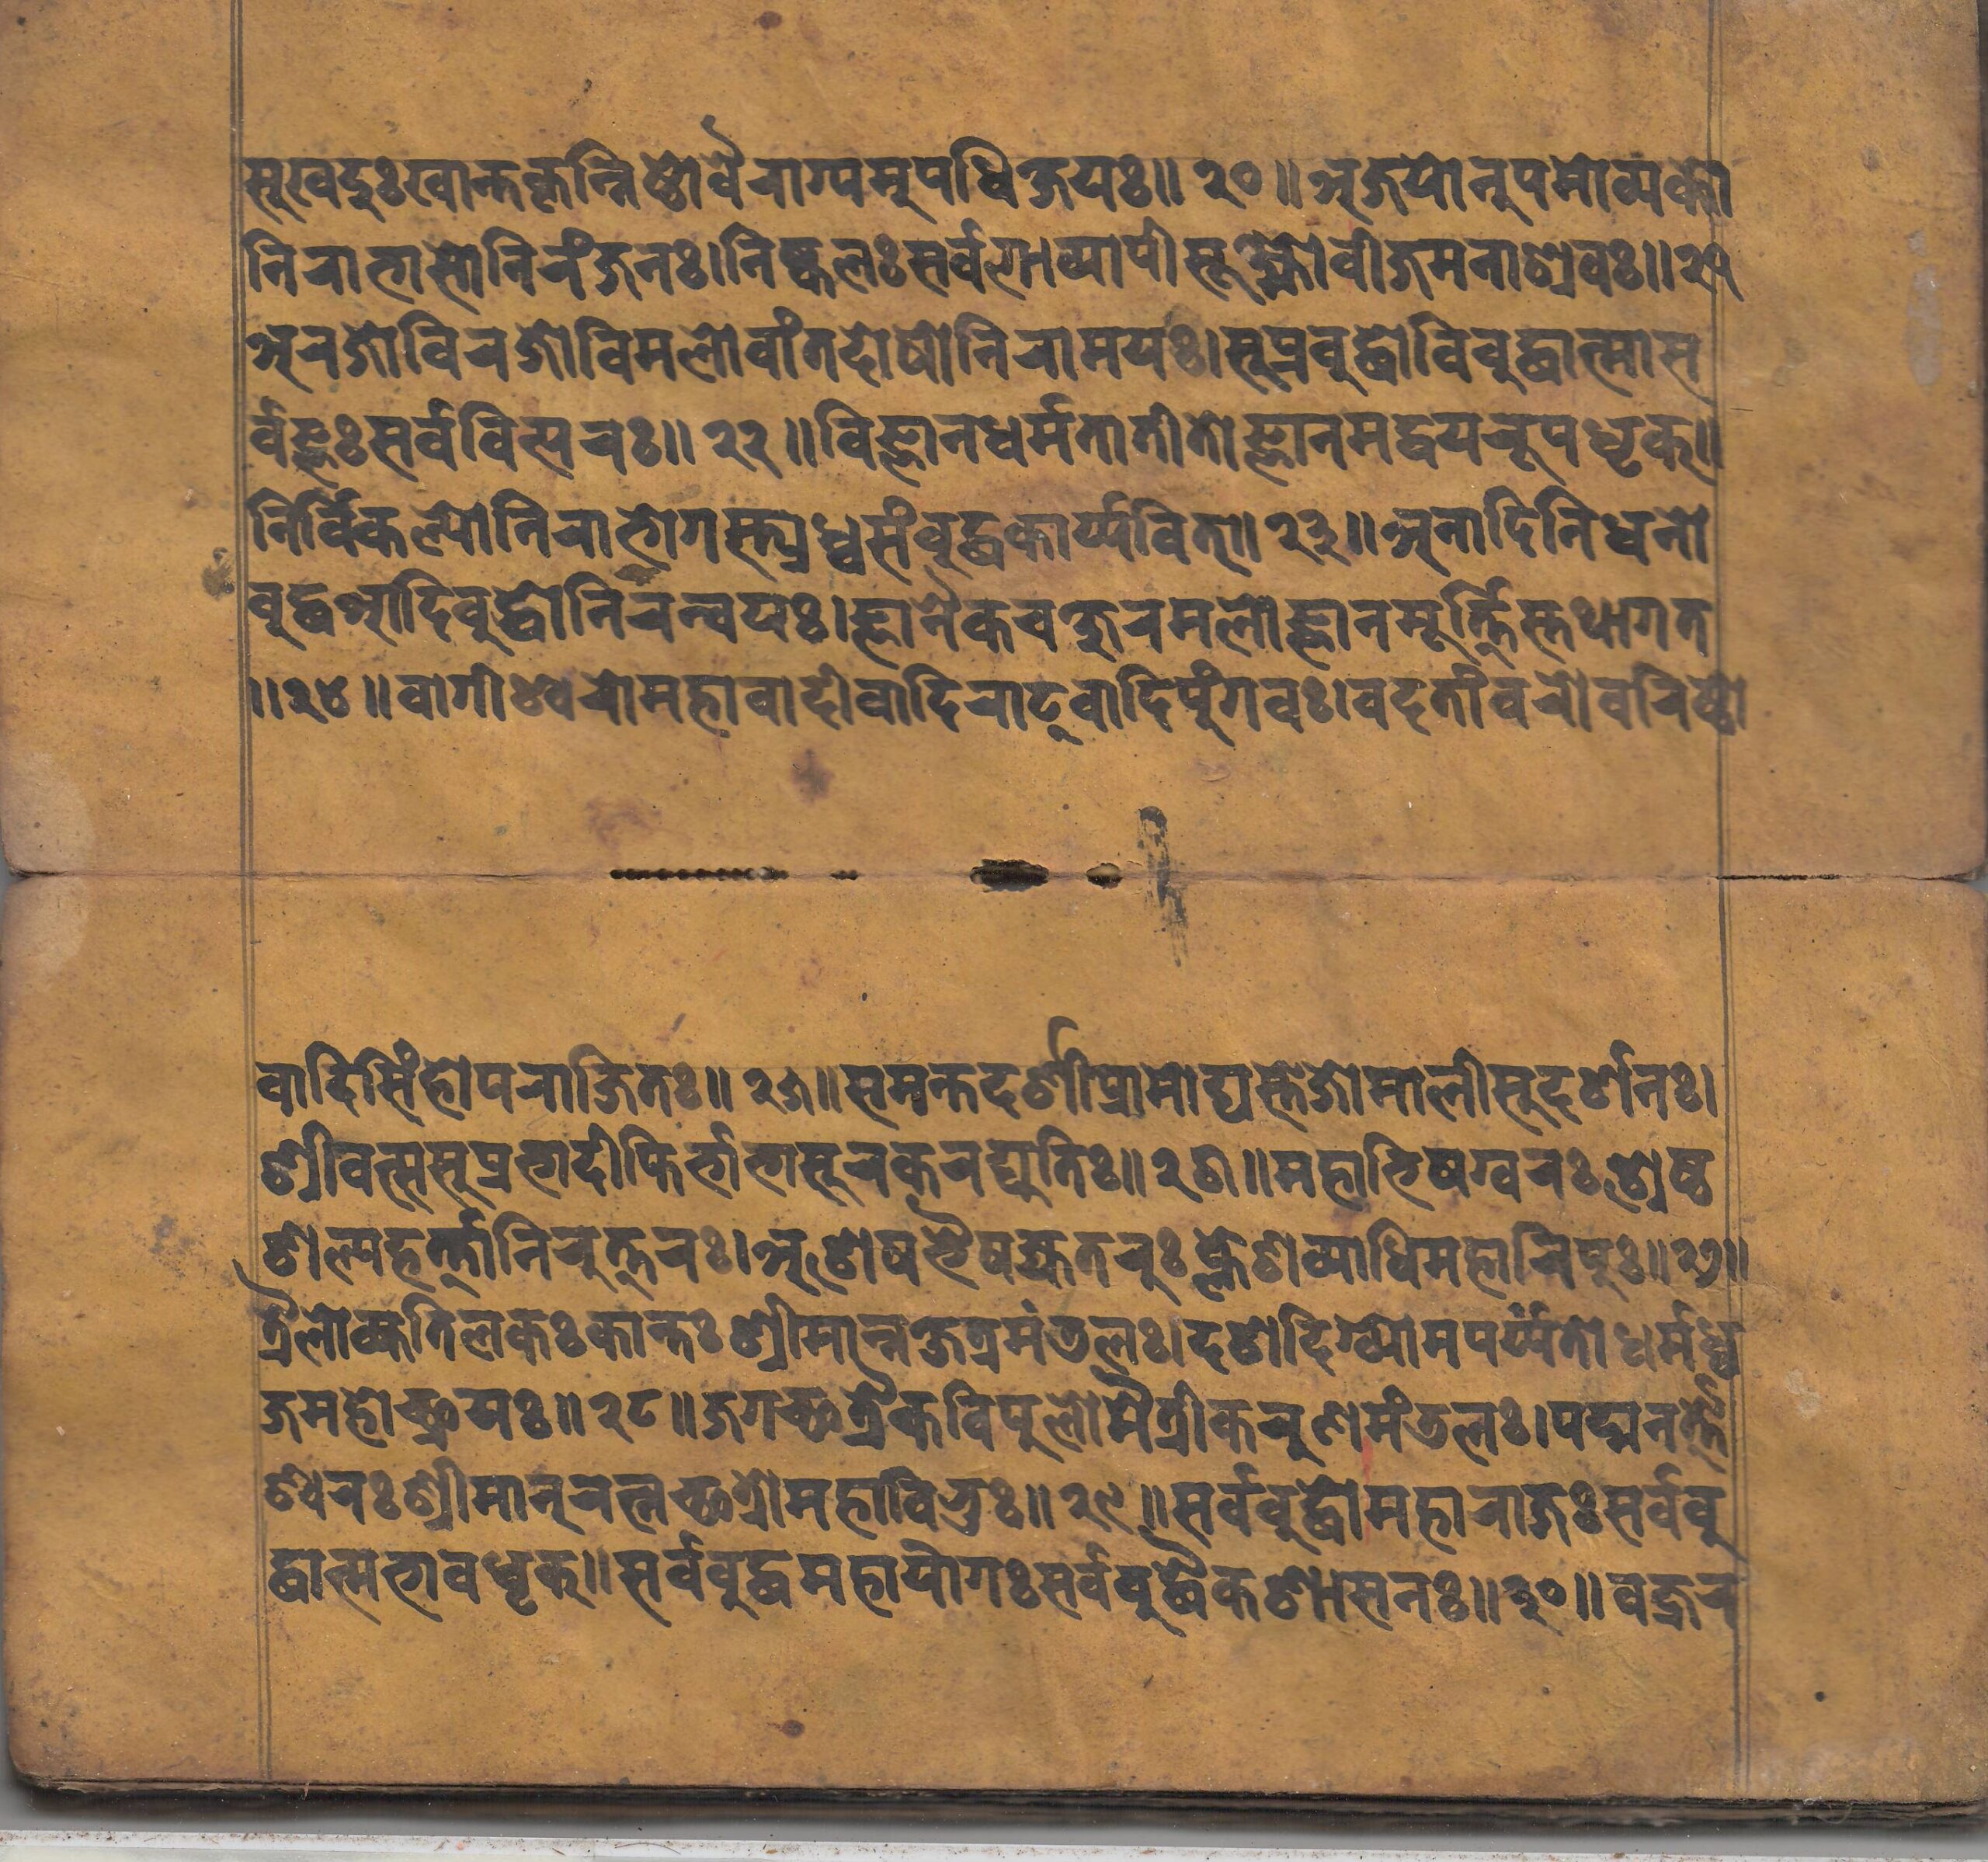 सूखदुःखान्तकृन्निष्ठोवैराग्यमूपधिक्षयः॥२०॥अजयोनुपमोव्यक्तो
निराभासोनिरंजनः।निष्कलःसर्वगाव्यापीसूक्ष्मोवीजमनाश्रवः॥२१
अरजोविरजोविमलोवांतदोषोनिरामयः।सूप्रबुद्धोविबुद्धात्मास
र्वज्ञःसर्ववित्परः॥२२॥विज्ञानधर्मतातीतोज्ञानमद्वयरूपधृक्॥
निर्विकल्पोनिराभोगस्त्र्यध्वसंबुद्धकार्य्यवित्॥२३॥अनादिनिधनो
बुद्धआदिबुद्धोनिरन्वयः।ज्ञानैकचक्षुरमलोज्ञानमूर्त्तिस्तथागत
॥२४॥वागीश्वरोमहावादीवादिराट्वादिपुंगवः।वदतांवरोवरिष्ठो
वादिसिंहोपराजितः॥२५॥समन्तदर्शीप्रामोद्यस्तेजोमालीसूदर्शनः।
श्रीवत्ससूप्रभादीप्तिर्भाभासूरकरद्युतिः॥२६॥महाभिषग्वरःश्रेष्ठ
शल्यहर्त्तानिरुत्तरः।अशेषभैषज्यतरुःक्लेशव्याधिमहारिपुः॥२७॥
त्रैलोक्यतिलकःकान्तःश्रीमान्नक्षत्रमंडलः।दशदिग्व्योमपर्य्यंतोधर्मध्व
जमहोच्छ्रयः॥२८॥जगच्छत्रैकविपुलोमैत्रीकरुणमंडलः।पद्मनर्त्ते
श्वरःश्रीमान्रत्नच्छत्रोमहाविभुः॥२९॥सर्वबुद्धोमहाराजःसर्वबु
द्धात्मभावधृक्॥सर्वबुद्धमहायोगःसर्वबुद्धैकशासनः॥३०॥वज्रर